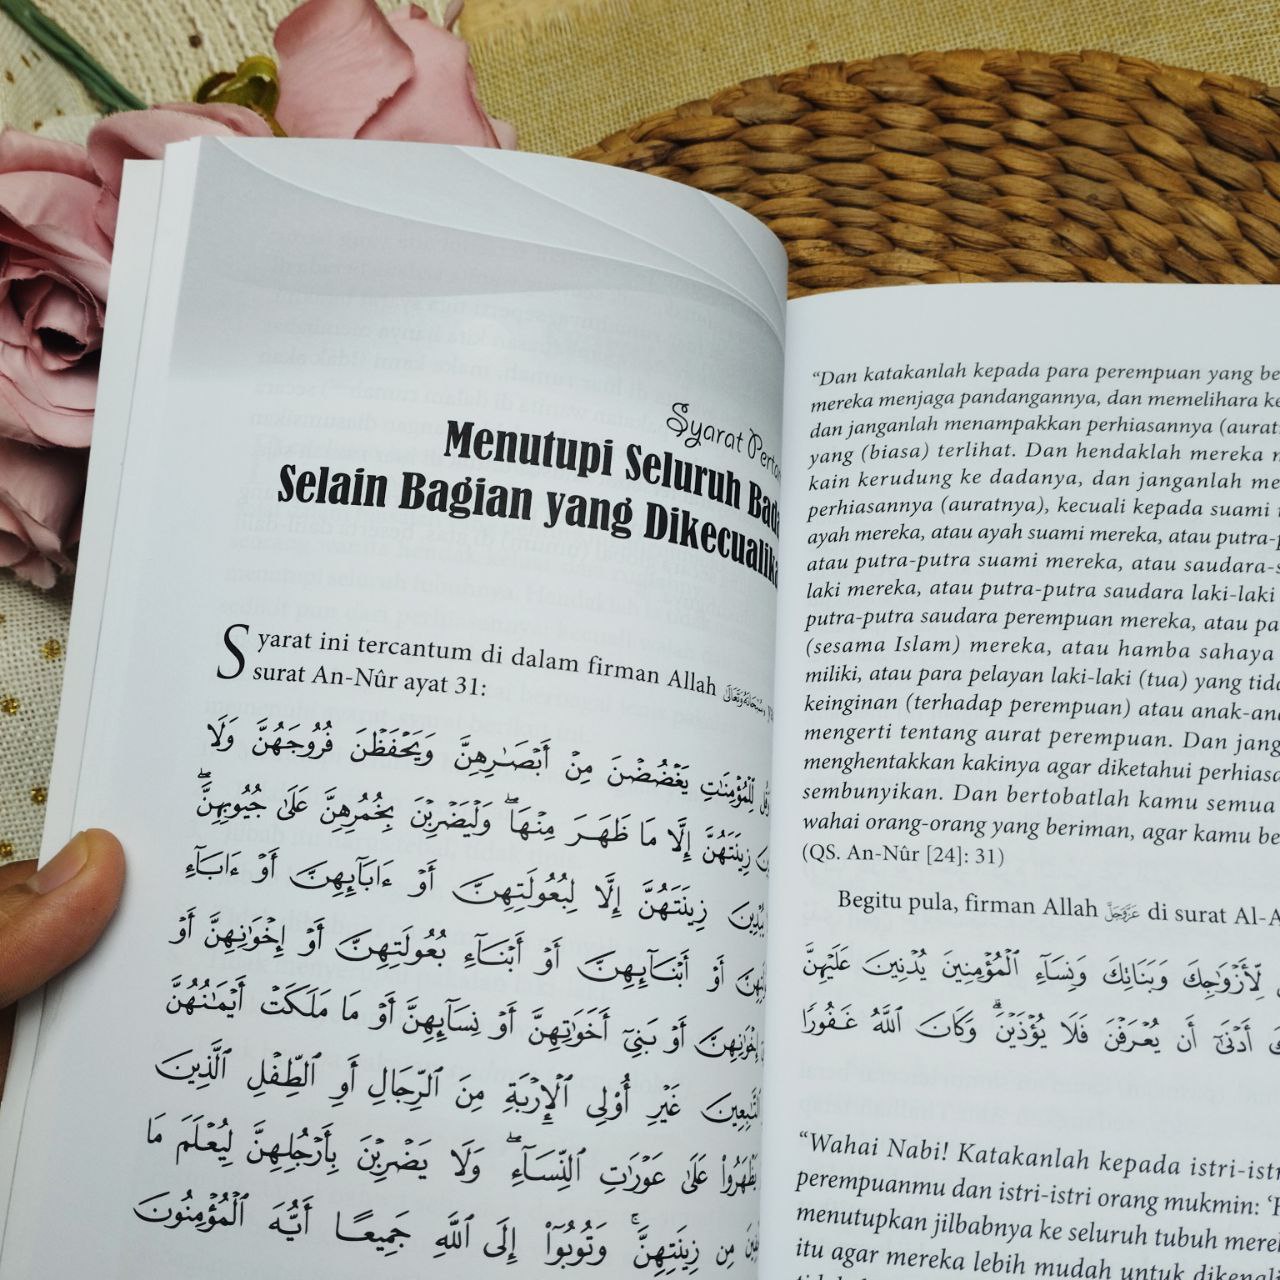 Syarat
Menutupi Seluruh
Selain Bagian yang
Syarat ini tercantum di dalam firman Allah
surat An-Nûr ayat 31:
لِّلْمُؤْمِنَٰتِ يَغْضُضْنَ مِنْ أَبْصَٰرِهِنَّ وَيَحْفَظْنَ فُرُوجَهُنَّ وَلَا
زِينَتَهُنَّ إِلَّا مَا ظَهَرَ مِنْهَا ۖ وَلْيَضْرِبْنَ بِخُمُرِهِنَّ عَلَىٰ جُيُوبِهِنَّ ۖ
زِينَتَهُنَّ إِلَّا لِبُعُولَتِهِنَّ أَوْ ءَابَآئِهِنَّ أَوْ ءَابَآءِ
أَوْ أَبْنَآئِهِنَّ أَوْ أَبْنَآءِ بُعُولَتِهِنَّ أَوْ إِخْوَٰنِهِنَّ أَوْ
إِخْوَٰنِهِنَّ أَوْ بَنِىٓ أَخَوَٰتِهِنَّ أَوْ نِسَآئِهِنَّ أَوْ مَا مَلَكَتْ أَيْمَٰنُهُنَّ
غَيْرِ أُو۟لِى ٱلْإِرْبَةِ مِنَ ٱلرِّجَالِ أَوِ ٱلطِّفْلِ ٱلَّذِينَ
يَظْهَرُوا۟ عَلَىٰ عَوْرَٰتِ ٱلنِّسَآءِ ۖ وَلَا يَضْرِبْنَ بِأَرْجُلِهِنَّ لِيُعْلَمَ مَا
مِن زِينَتِهِنَّ ۚ وَتُوبُوٓا۟ إِلَى ٱللَّهِ جَمِيعًا أَيُّهَ ٱلْمُؤْمِنُونَ
“Dan katakanlah kepada para perempuan yang
mereka menjaga pandangannya, dan memelihara
dan janganlah menampakkan perhiasannya
yang (biasa) terlihat. Dan hendaklah mereka
kain kerudung ke dadanya, dan janganlah
perhiasannya (auratnya), kecuali kepada suami
ayah mereka, atau ayah suami mereka, atau
atau putra-putra suami mereka, atau
laki mereka, atau putra-putra saudara laki-laki
putra-putra saudara perempuan mereka, atau
(sesama Islam) mereka, atau hamba sahaya
miliki, atau para pelayan laki-laki (tua) yang
keinginan (terhadap perempuan) atau
mengerti tentang aurat perempuan. Dan
menghentakkan kakinya agar diketahui
sembunyikan. Dan bertobatlah kamu semua
wahai orang-orang yang beriman, agar kamu
(QS. An-Nûr [24]: 31)
Begitu pula, firman Allah عَزَّوَجَلَّ di surat
لِّأَزْوَٰجِكَ وَبَنَاتِكَ وَنِسَآءِ ٱلْمُؤْمِنِينَ يُدْنِينَ عَلَيْهِنَّ
أَدْنَىٰٓ أَن يُعْرَفْنَ فَلَا يُؤْذَيْنَ ۗ وَكَانَ ٱللَّهُ غَفُورًا
“Wahai Nabi! Katakanlah kepada
perempuanmu dan istri-istri orang mukmin:
menutupkan jilbabnya ke seluruh tubuh
itu agar mereka lebih mudah untuk